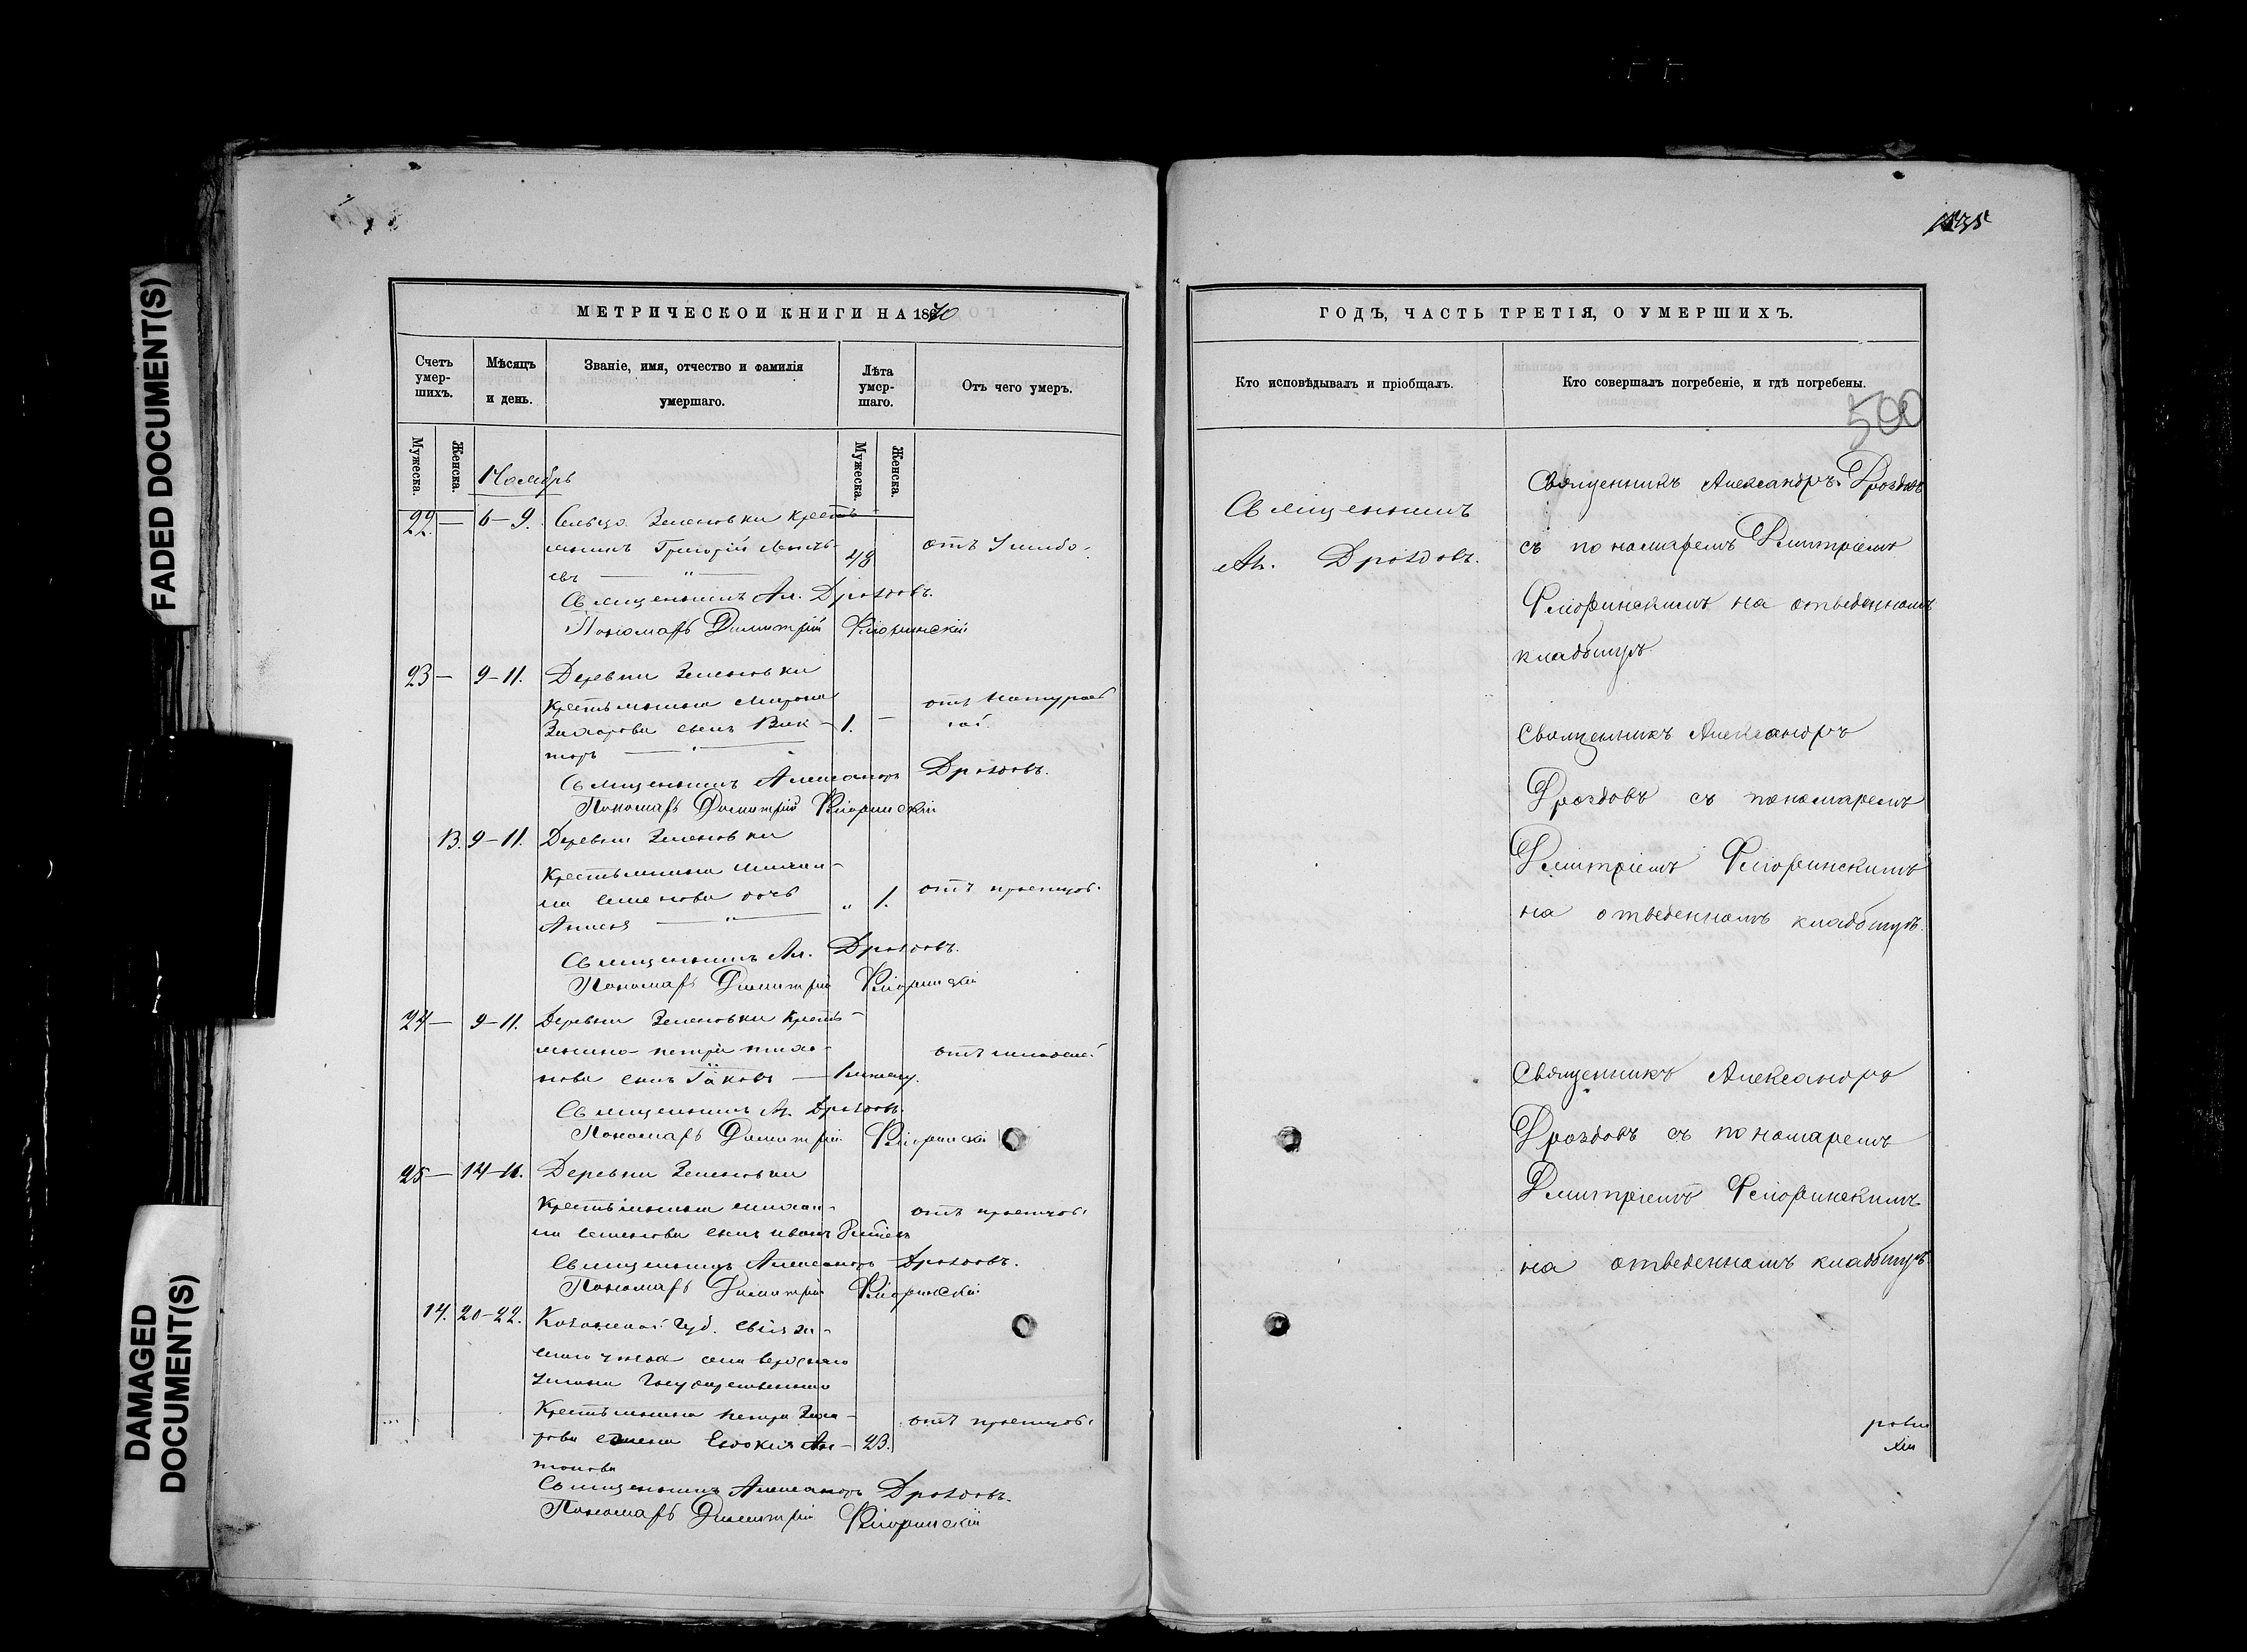 FADED DOCUMENT(S)
DAMAGED
DOCUMENT(S)
МЕТРИЧЕСКОЙ КНИГИ НА 1870
Счетъ умер-шихъ.
Мѣсяцъ и день.
Званіе, имя, отчество и фамилія умершаго.
Лѣта умер-шаго.
Отъ чего умеръ.
Мужеска.
Женска.
Мужеска.
Женска.
Ноябрь
22. — 6–9. Сельцо Зеленовки кресть-
янинъ Григорій 48 отъ
евъ — " —
Священникъ Ал. Дроздовъ.
Пономарь Димитрій Флоринскій
23 — 9–11. Деревни Зеленовки
крестьянина Мирона отъ натураль
Захарова сынъ Вик- 1. — ной
торъ — " —
Священникъ Александръ Дроздовъ.
Пономарь Димитрій Флоринскій
13. 9–11. Деревни Зеленовки
Крестьянина Михаи-
ла Семенова дочь " 1. отъ
— " —
Священникъ Ал. Дроздовъ.
Пономарь Димитрій Флоринскій
24 — 9–11. Деревни Зеленовки кресть-
янина Петра Тихо- отъ
нова сынъ Іаковъ —
Священникъ Ал. Дроздовъ.
Пономарь Димитрій Флоринскій
25 — 14–16. Деревни Зеленовки
Крестьянина Михаи- отъ
ла Семенова сынъ Иванъ
Священникъ Александръ Дроздовъ.
Пономарь Димитрій Флоринскій
14. 20–22. Казанской губ. Свіяж-
скаго уѣзда села
Государственнаго
Крестьянина Петра Заха- отъ
рова жена Евдокия Ан- 23.
тонова
Священникъ Александръ Дроздовъ.
Пономарь Димитрій Флоринскій
ГОДЪ, ЧАСТЬ ТРЕТІЯ, О УМЕРШИХЪ.
Кто исповѣдывалъ и пріобщалъ.
Кто совершалъ погребеніе, и гдѣ погребены.
500
Священникъ
Ал. Дроздовъ.
Священникъ Александръ Дроздовъ
съ пономаремъ Дмитріемъ
Флоринскимъ на отведенномъ
кладбищѣ
Священникъ Александръ
Дроздовъ съ пономаремъ
Дмитріемъ Флоринскимъ
на отведенномъ кладбищѣ.
Священникъ Александръ
Дроздовъ съ пономаремъ
Дмитріемъ Флоринскимъ
на отведенномъ кладбищѣ.